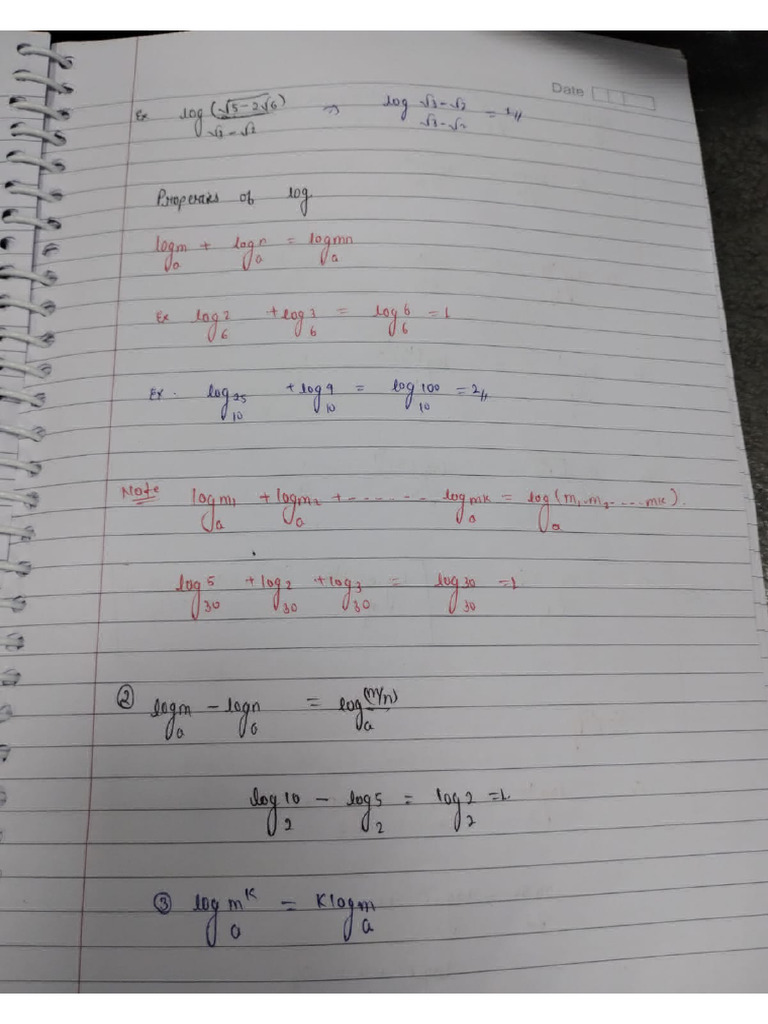 Date
Ex log_{√3-√2} (√5-2√6) ⇒ log_{√3-√2} √3-√2 = 1//
Properties of log
log_a m + log_a n = log_a mn
Ex log_6 2 + log_6 3 = log_6 6 = 1
Ex. log_10 25 + log_10 4 = log_10 100 = 2//
Note log_a m1 + log_a m2 + ------- log_a mk = log_a (m1.m2.....mk).
log_30 5 + log_30 2 + log_30 3 = log_30 30 = 1
② log_a m - log_a n = log_a (m/n)
log_2 10 - log_2 5 = log_2 2 = 1.
③ log_a m^K = K log_a m